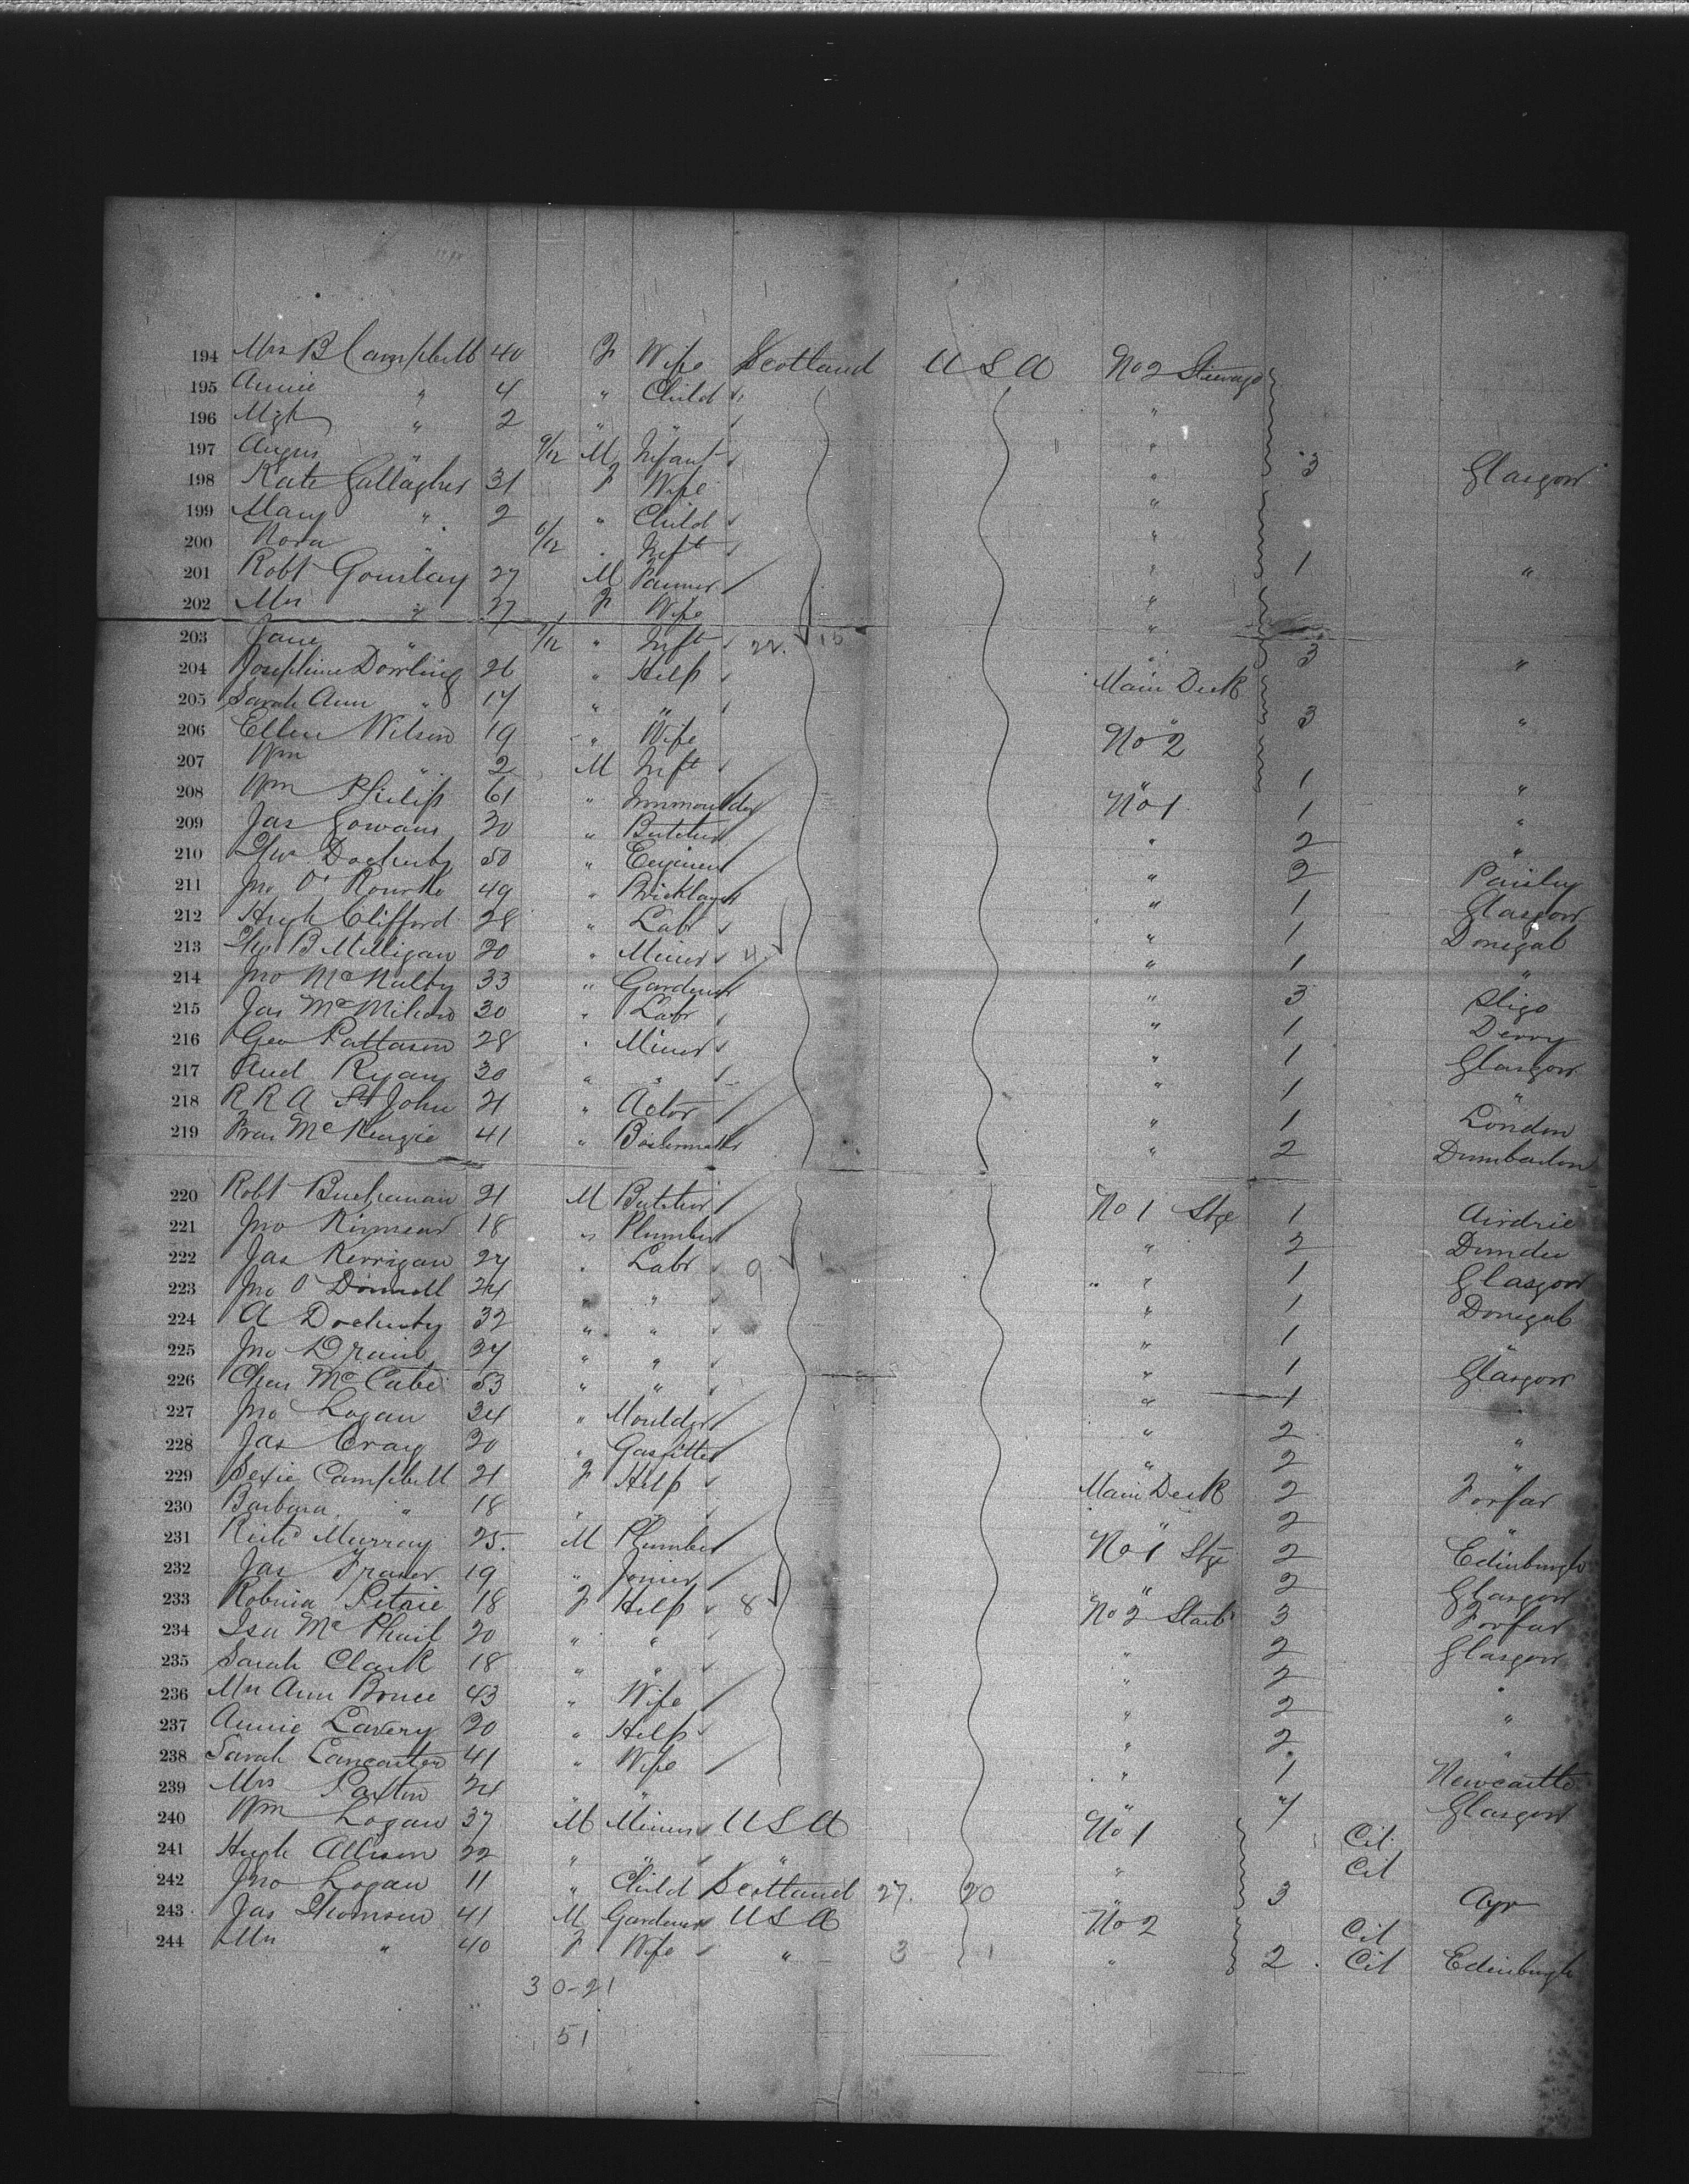 194 Mrs B Campbell 40 F Wife Scotland USA No 2 Steerage
195 Annie " 4 " Child "
196 Mgt " 2 " " "
197 Angus " 9/12 M Infant " 3 Glasgow
198 Kate Gallagher 31 F Wife "
199 Mary " 2 " Child "
200 Nora " 6/12 " Inft "
201 Robt Gourlay 27 M Farmer " 1 "
202 Mrs " 27 F Wife "
203 Jane " 7/12 " Inft 22. 15 "
204 Josephine Dowling 26 " Help Main Deck 3 "
205 Sarah Ann " 17 " " "
206 Ellen Wilson 19 " Wife No 2 3 "
207 Wm " 2 M Inft "
208 Wm Philip 61 " Ironmoulder No 1 1 "
209 Jas Gowans 30 " Butcher " 1 "
210 Docherty 50 " Engineer " 2 "
211 Jno O'Rourke 49 " Bricklayer " 2 Paisley
212 Hugh Clifford 28 " Labr " 1 Glasgow
213 B Milligan 20 " Miner 4 " 1 Donegal
214 Jno McNulty 33 " Gardener " 1 "
215 Jas 30 " Labr " 3 Sligo
216 Geo Pattason 28 " Miner " 1 Derry
217 Ryan 30 " " " 1 Glasgow
218 R R A St John 21 " Actor " 1 "
219 Fras McKenzie 41 " Boilermaker " 1 London
" 2 Dumbarton
220 Robt Buchanan 21 M Butcher No 1 Stge 1 Airdrie
221 Jno Kinnear 18 " Plumber " 2 Dundee
222 Jas Kerrigan 27 " Labr 9 " 1 Glasgow
223 Jno O'Donnell 24 " " " 1 Donegal
224 A Docherty 32 " " " 1 "
225 Jno Drain 24 " " " 1 Glasgow
226 Chas McCabe 53 " " " 1 "
227 Jno Logan 34 " Moulder " 2 "
228 Jas Cray 20 " Gasfitter " 2 "
229 Campbell 21 F Help Main Deck 2 Forfar
230 Barbara " 18 " " " 2 "
231 Richd Murray 25. M Plumber No 1 Stge 2 Edinburgh
232 Jas Fraser 19 " Joiner " 2 Glasgow
233 Robina Petrie 18 F Help 8 No 2 Starb 3 Forfar
234 Isa McPhail 20 " " " 2 Glasgow
235 Sarah Clark 18 " " " 2 "
236 Mrs Ann Bruce 43 " Wife " 2 "
237 Annie Lavery 20 " Help " 2 "
238 Sarah Lancaster 41 " Wife " 1 Newcastle
239 Mrs Paxton 24 " " " 1 Glasgow
240 Wm Logan 37 M Miner USA No 1 Cit
241 Hugh Allison 22 " " " " Cit
242 Jno Logan 11 " Child Scotland 27. 20 " 3 Ayr
243 Jas Thomson 41 M Gardener USA No 2 Cit
244 Mrs " 40 F Wife " 3 1 " 2 Cit Edinburgh
30-21
51